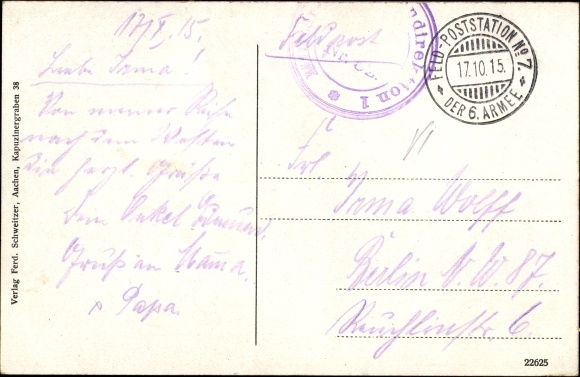 17/X. 15.
Liebe Irma!
Von meiner Reise
nach dem Westen
Dir herzl. Grüße
Dein Onkel Edmund.
Gruß an Mama
Papa
Verlag Ferd. Schweitzer, Aachen, Kapuzinergraben 38
Feldpost
FELD-POSTSTATION No 7.
17.10.15.
DER 6. ARMEE
Frl
Irma Wolff
Berlin N.W. 87.
Reuchlinstr. 6.
22625